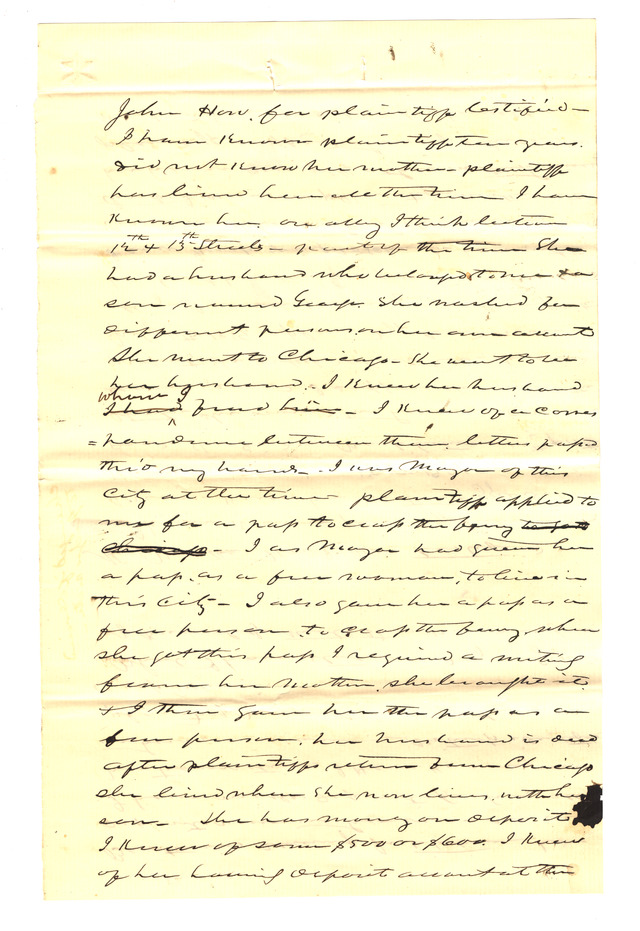 John How, for plaintiff testified -
I have known plaintiff ten years.
did not know her mother - plaintiff
has lived here all the time I have
known her, on alley I think between
12th & 13th Streets - part of the time She
had a husband who belonged to me & a
son named George. She washed for
different persons on her own account
She went to Chicago - She went to see
her husband. I knew her husband
whom I
I had freed him - I knew of a corres
=pondence between them, letters pass
thro my hands - I was Mayor of this
City at the time plaintiff applied to
me for a pass to cross the ferry to go to
Chicago - I as Mayor had given her
a pass, as a free woman, to live in
this City - I also gave her a pass as a
free person to cross the ferry when
she got this pass I required a writing
from her mother, she brought it
& I then gave her the pass as a
free person, her husband is dead
after plaintiffs return from Chicago
she lived where she now lives, with her
son - She has money on deposit
I knew of some $500 or $600. I knew
of her having deposit account at the